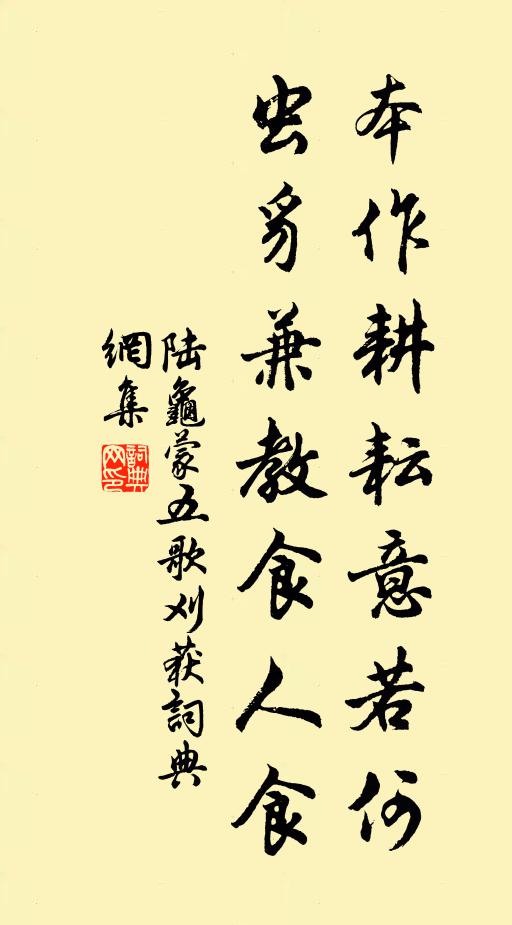 本作耕耘意若何
虫豸兼教食人食
陆龜蒙五歌刈获詞典
網集
詞典
网印